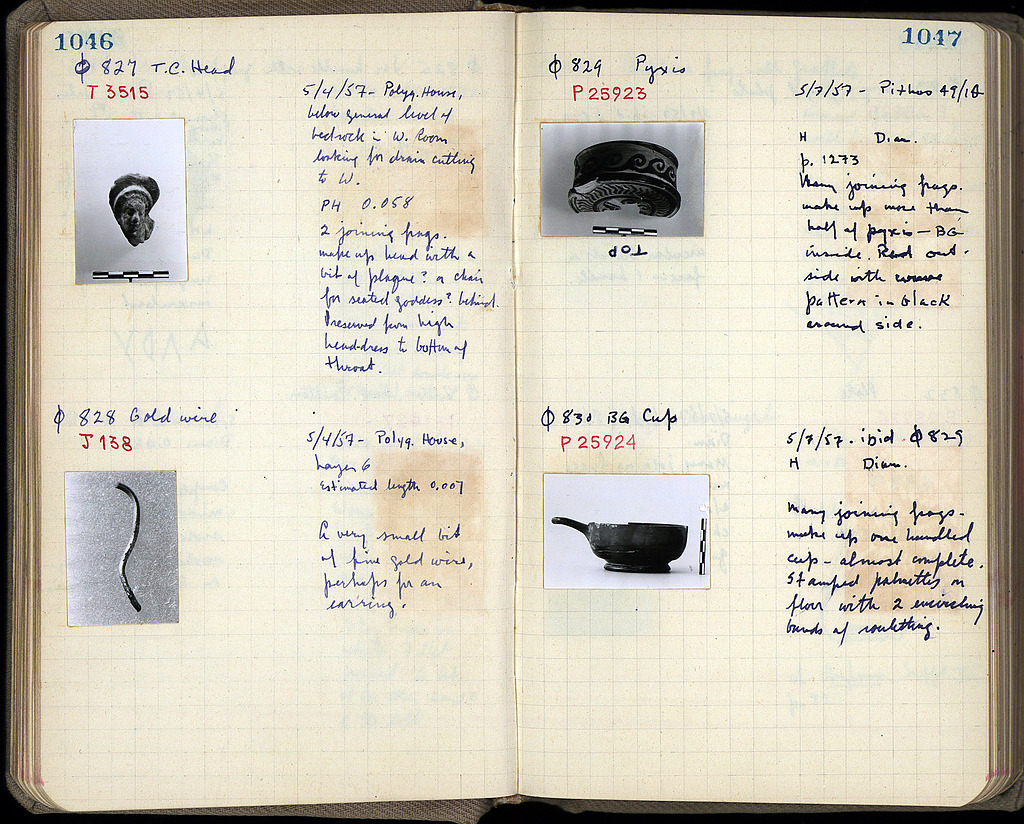 1046
Φ 827 T.C. Head
T 3515
5/4/57 - Polyg. House,
below general level of
bedrock in W. Room
looking for drain cutting
to W.
PH 0.058
2 joining frags.
make up head with a
bit of plaque? or chair
for seated goddess? behind.
Preserved from high
head-dress to bottom of
throat.
Φ 828 Gold wire
J 138
5/4/57 - Polyg. House,
Layer 6
Estimated length 0.007
A very small bit
of fine gold wire,
perhaps for an
earring.
1047
Φ 829 Pyxis
P 25923
5/7/57 - Pithos 49/1
H Diam.
p. 1273
Many joining frags.
make up more than
half of pyxis - BG
inside. Red out-
side with wave
pattern in black
around side.
TOP
Φ 830 BG Cup
P 25924
5/7/57. ibid. Φ829
H Diam.
Many joining frags.
make up one handled
cup - almost complete.
Stamped palmettes on
floor with 2 encircling
bands of rouletting.